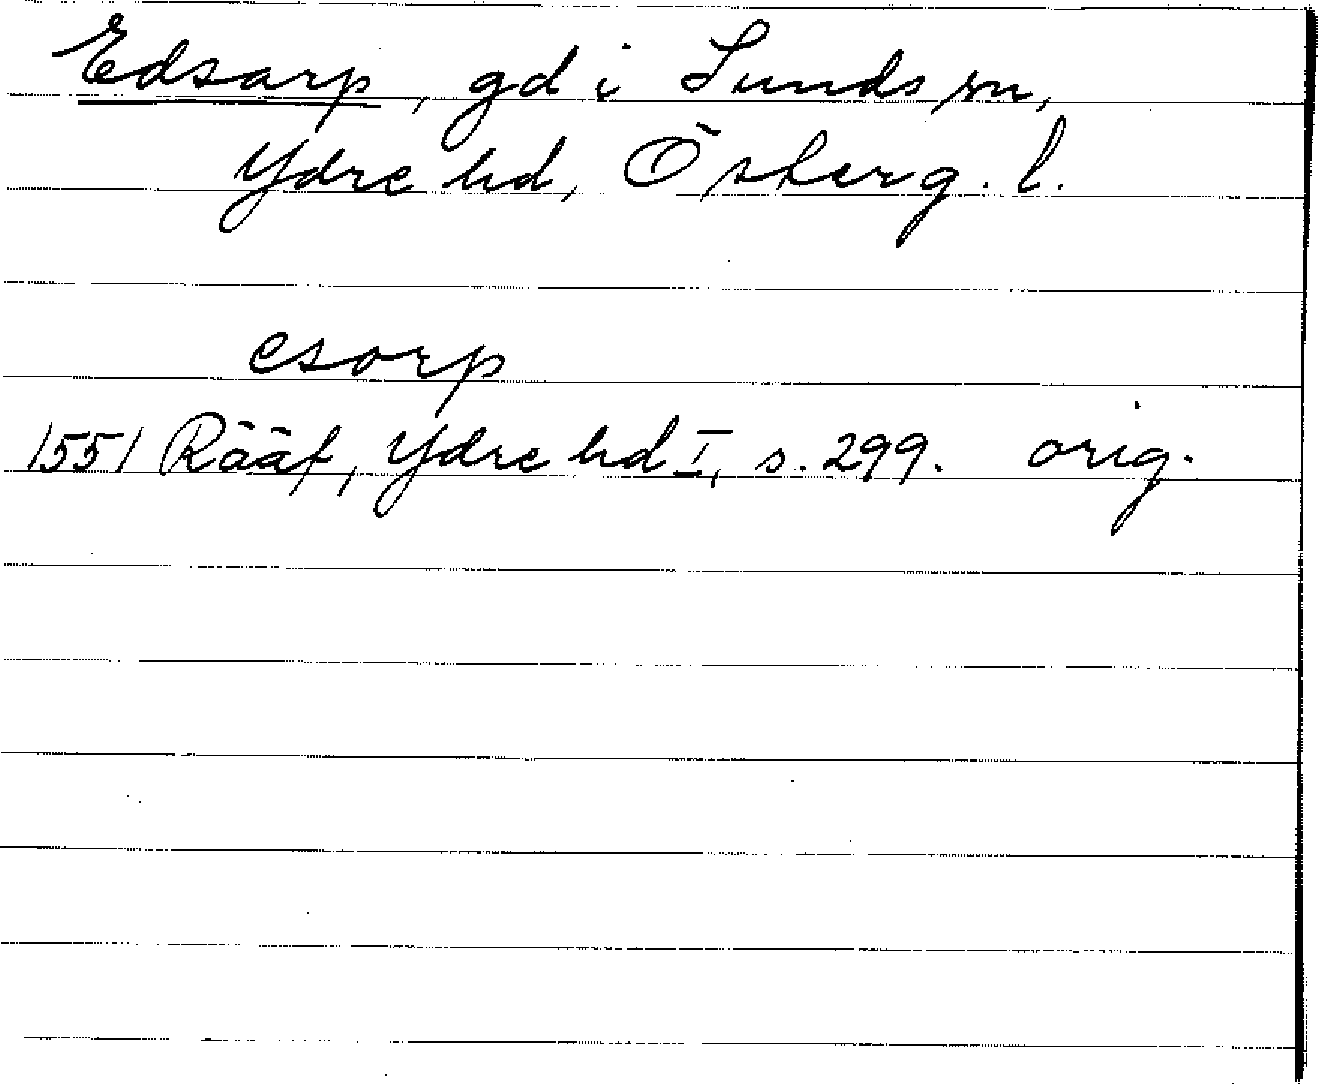 Edsarp, gd i Sunds sn,
Ydre hd, Österg. l.
esorp
1551 Rääf, Ydre hd I, s. 299. orig.